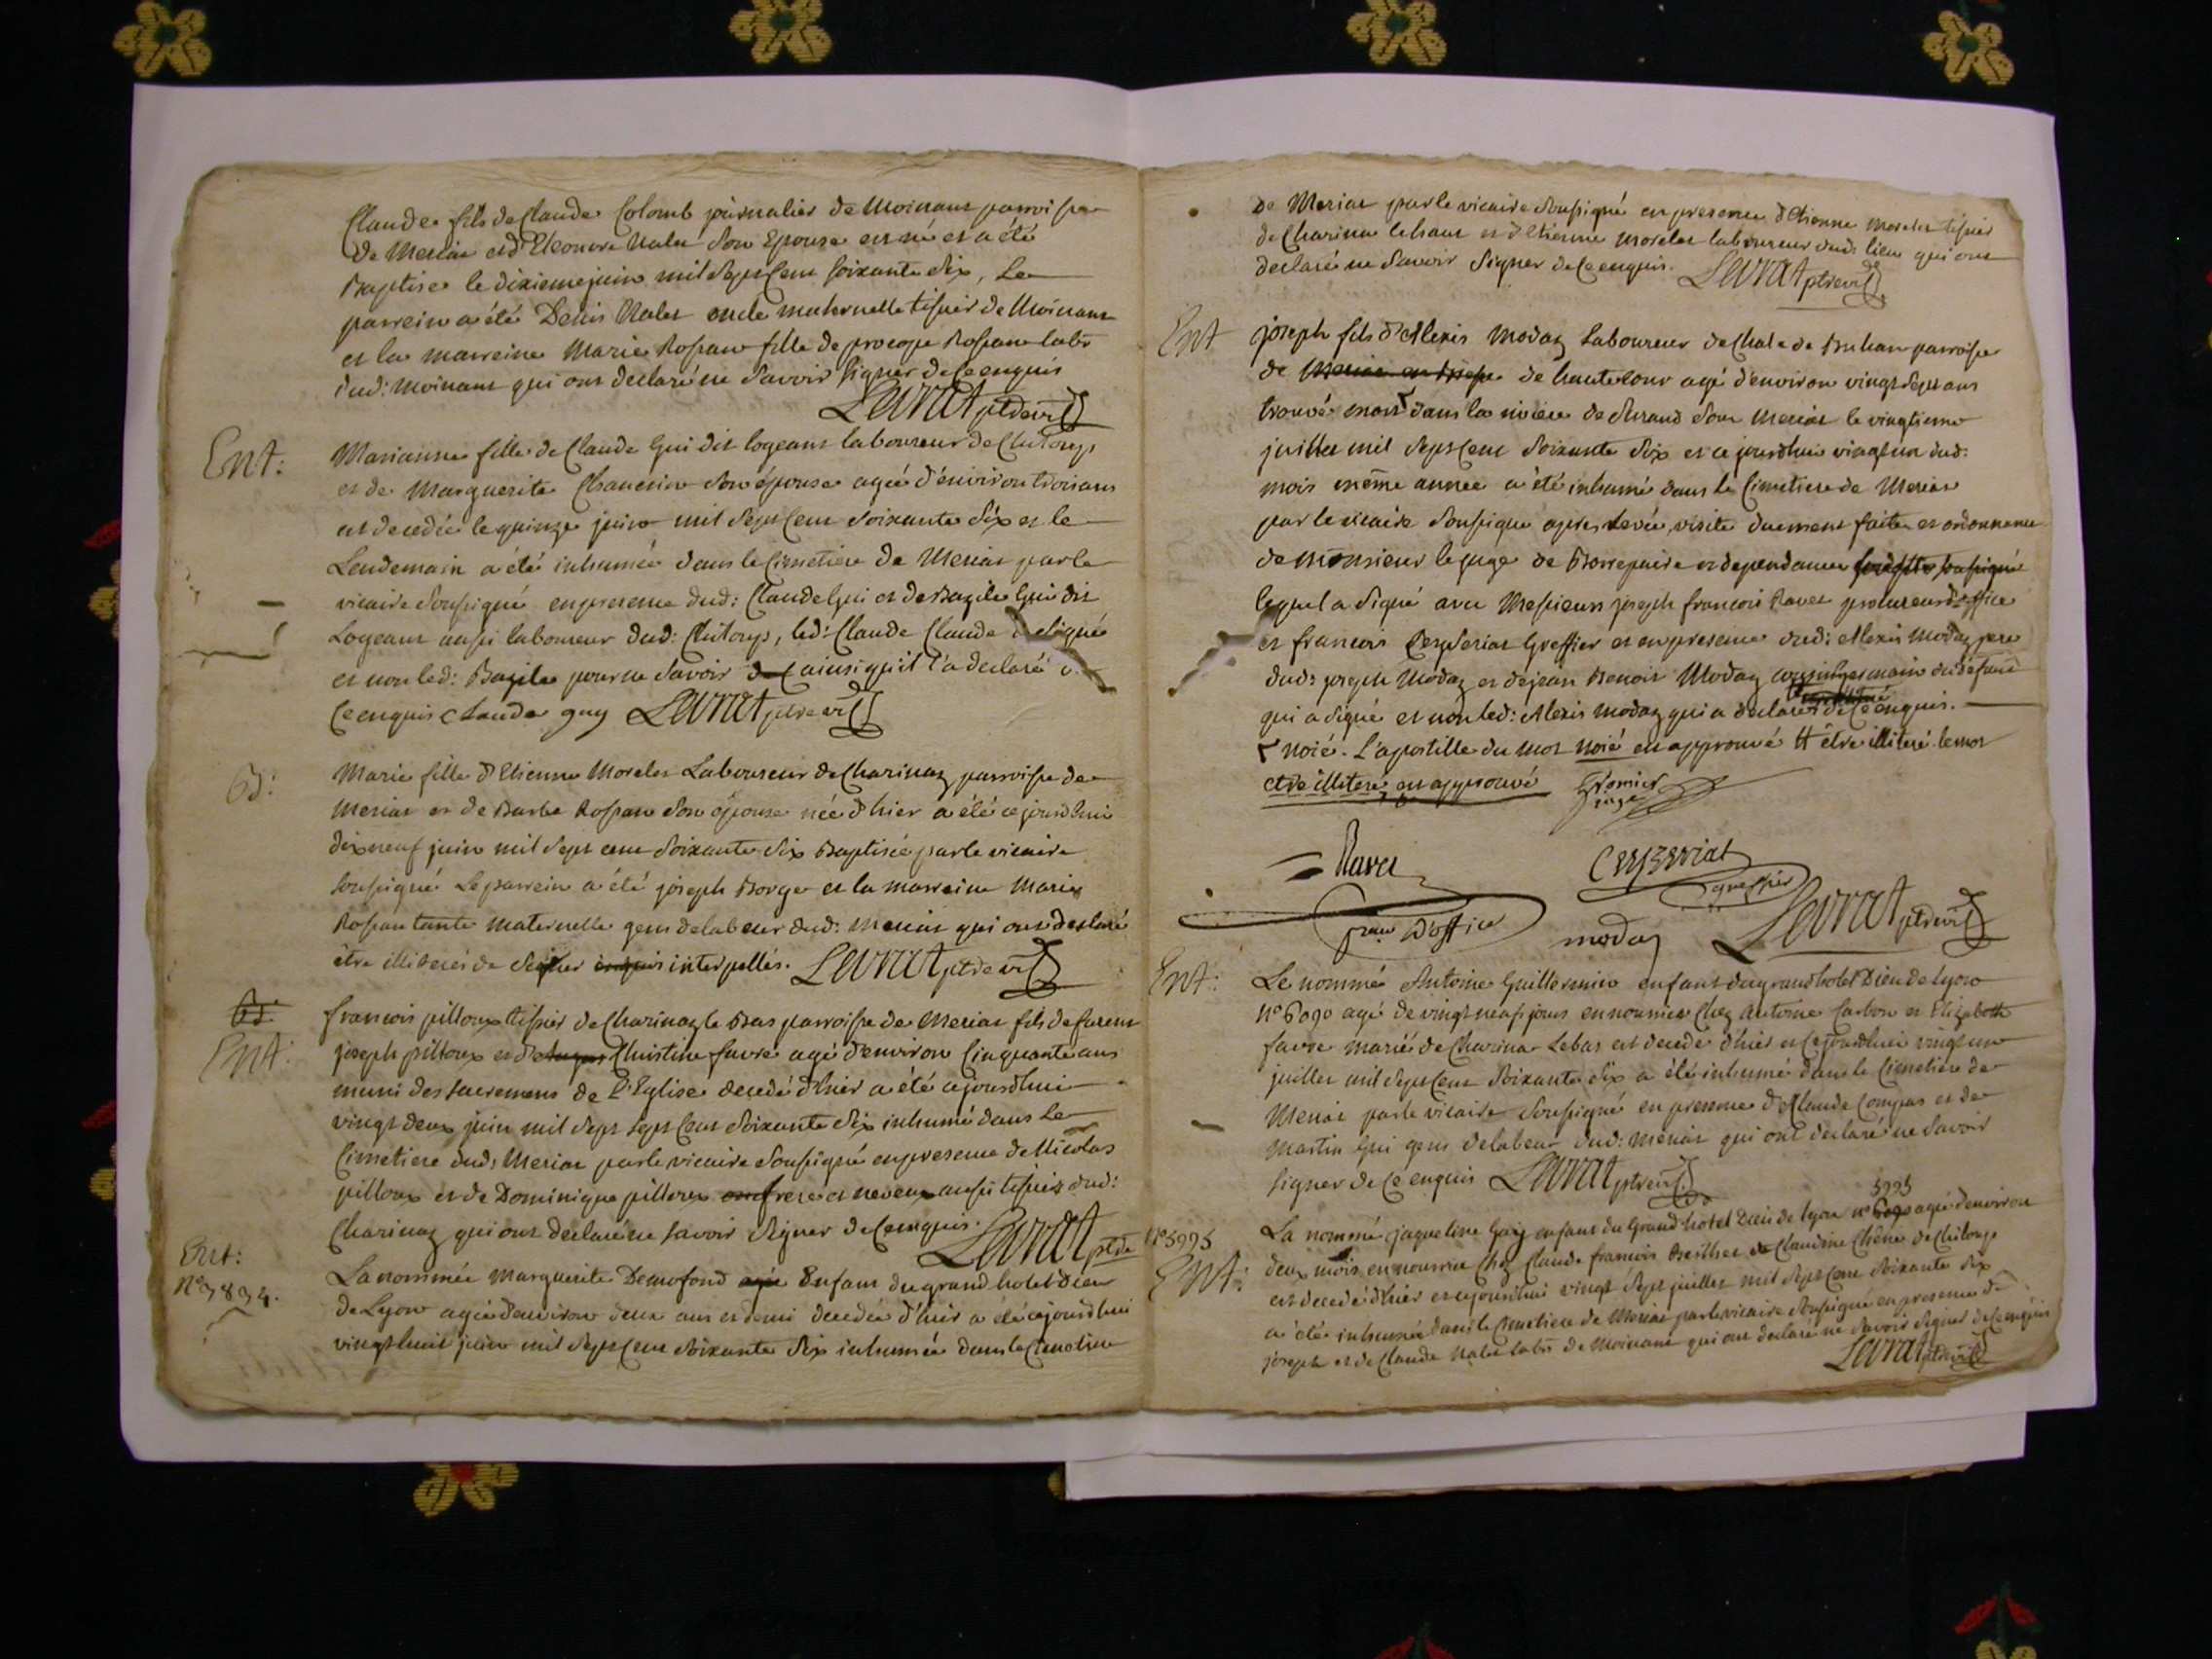 Claude fils de Claude Colomb journalier de Moinans parroisse
de Meriat et d'Eleonore Nalet son Epouse est né et a été
Baptisé le dixieme juin mil sept Cent soixante six, Le
parrein a été Denis Nalet oncle maternelle tissier de Moinans
et la marreine Marie Rossan fille de procope Rossan labr
dud: Moinans qui ont declaré ne savoir signer de Ce enquis
Levrat ptre vic
Ent:
Marianne fille de Claude Gui dit logeans laboureur de
et de Marguerite son épouse agée d'environ trois ans
est decedée le quinze juin mil sept Cent soixante six et le
Lendemain a été inhumée dans le Cimetiere de Meriat par le
vicaire soussigné en presence dud: Claude Gui et de Bazile Gui dit
Logeans aussi laboureur dud: led: Claude Claude a signé
et non led: Bazile pour ne savoir ainsi qu'il l'a declaré
Ce enquis Claude guy Levrat ptre vic
Bt:
Marie fille d'Etienne Morelet Laboureur de Charinaz parroisse de
Meriat et de Barbe Rossan son épouse née d'hier a été ce jourdhui
dix neuf juin mil sept cent soixante six Baptisée par le vicaire
soussigné Le parrein a été joseph Borge et la marreine Marie
Rossan tante maternelle gens de labeur dud: Meriat qui ont declaré
être illiterés de signer enquis interpellés. Levrat ptre vic
Bt:
Ent:
francois pilloux tissier de Charinaz le Bas parroisse de Meriat fils de
joseph pilloux et de Christine favre agé d'environ Cinquante ans
muni des sacremens de l'Eglise decedé d'hier a été cejourdhui
vingt deux juin mil sept sept Cent soixante six inhumé dans Le
Cimetiere dud: Meriat par le vicaire soussigné en presence de Nicolas
pilloux et de Dominique pilloux frere et neveux aussi tissiers dud:
Charinaz qui ont declaré ne savoir signer de Ce enquis. Levrat ptre
Ent:
N° 3834.
La nommée Marguerite Demofond agée Enfant du grand hotel Dieu
de Lyon agée d'environ deux ans et demi decedée d'hier a été cejourdhui
vingt huit juin mil sept Cent soixante six inhumée dans le Cimetiere
de Meriat par le vicaire soussigné en presence d'Etienne Morelet tissier
de Charina le haut et d'Etienne Morelet laboureur dud: lieu qui ont
declaré ne savoir signer de Ce enquis. Levrat ptre vic
Ent
joseph fils d'Alexis Modaz Laboureur de Chale de parroisse
de Meriat de hautecour agé d'environ vingt sept ans
trouvé mort dans la riviere de Surand sous Meriat le vingtieme
juillet mil sept Cent soixante six et ce jourdhui vingt un dud:
mois même année a été inhumé dans le Cimetiere de Meriat
par le vicaire soussigné apres Levée, visite duement faite et ordonnance
de Monsieur le juge de Borrepaire et dependances soussigné
lequel a signé avec Messieurs joseph francois Ravet procureur d'office
et francois Cerzeriat Greffier et en presence dud: Alexis Modaz pere
dud: joseph Modaz et de jean Benoit Modaz cousin germain du defunt
qui a signé et non led: Alexis Modaz qui a declaré de Ce enquis.
noié. L'apostille du mot noié est approuvé H être illiteré. le mot
etre illiteré est approuvé Gromier
juge
Ravet Cerzeriat
greffier
procr D'office modaz Levrat ptre vic
Ent:
Le nommé Antoine Guillermin enfant du grand hotel Dieu de Lyon
n° 6090 agé de vingt neuf jours en nourrice Chez Antoine Carbon et Elizabeth
favre mariés de Charina Lebas est decedé d'hier et cejourdhui vingt un
juillet mil sept Cent soixante six a été inhumé dans le Cimetiere de
Meriat par le vicaire soussigné en presence de Claude Compas et de
Martin Gui gens de labeur dud: Meriat qui ont declaré ne savoir
signer de Ce enquis Levrat ptre vic
N° 5995
Ent:
5995
La nommé jaqueline Guy enfant du Grand hotel Dieu de lyon n° 6090 agée d'environ
deux mois en nourrice Chez Claude francois et Claudine Chêne de
est decedé d'hier et cejourdhui vingt sept juillet mil sept Cent soixante six
a été inhumée dans le Cimetiere de Meriat par le vicaire soussigné en presence de
joseph et de Claude Nalet labrs de Moinans qui ont declaré ne savoir signer de Ce enquis
Levrat ptre vic